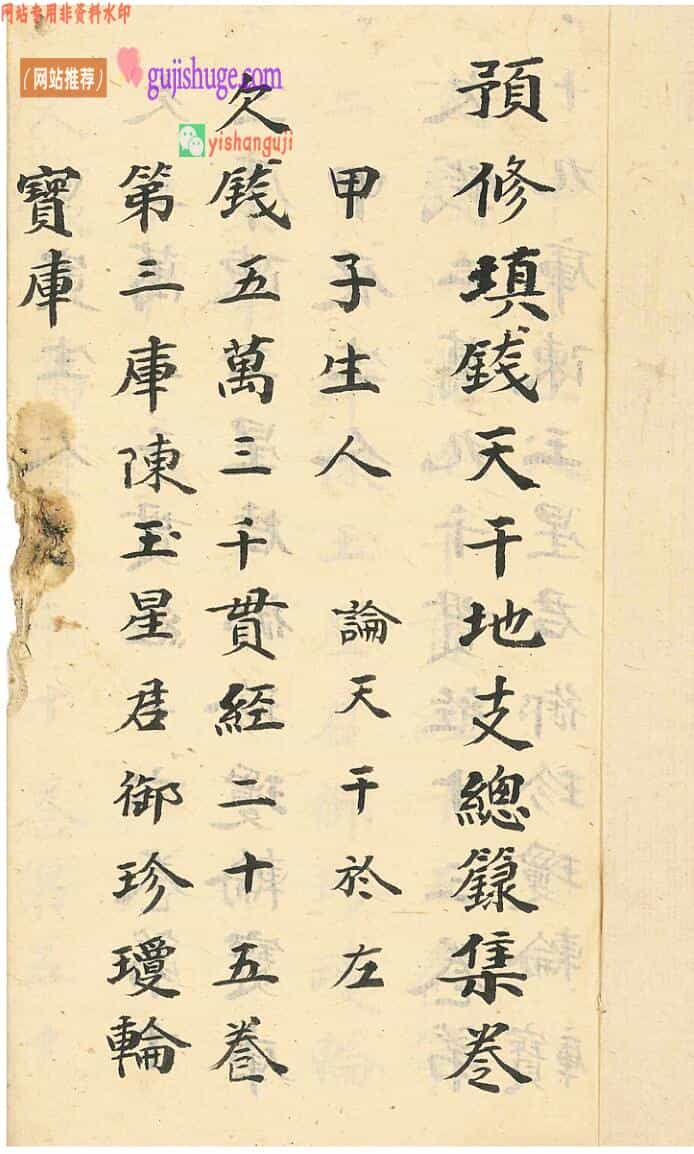 网站专用非资料水印
（网站推荐）
gujishuge.com
yishanguji
預修填錢天干地支總籙集卷
甲子生人 論天干於左
欠錢五萬三千貫經二十五卷
第三庫陳玉星君御珍瓊輪
寶庫